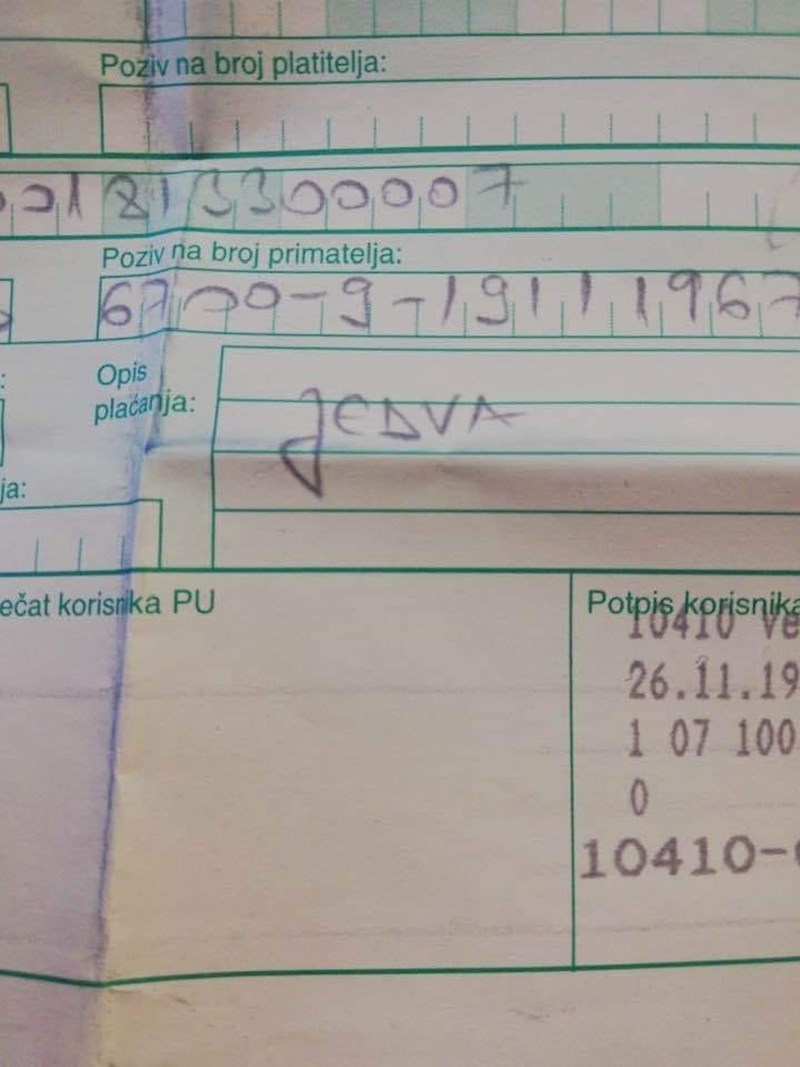 Poziv na broj platitelja:
01813300007
Poziv na broj primatelja:
6700-9-19111967
Opis
plaćanja:
JEDVA
ja:
ečat korisnika PU
Potpis korisnika
10410 Ve
26.11.19
1 07 100
0
10410-